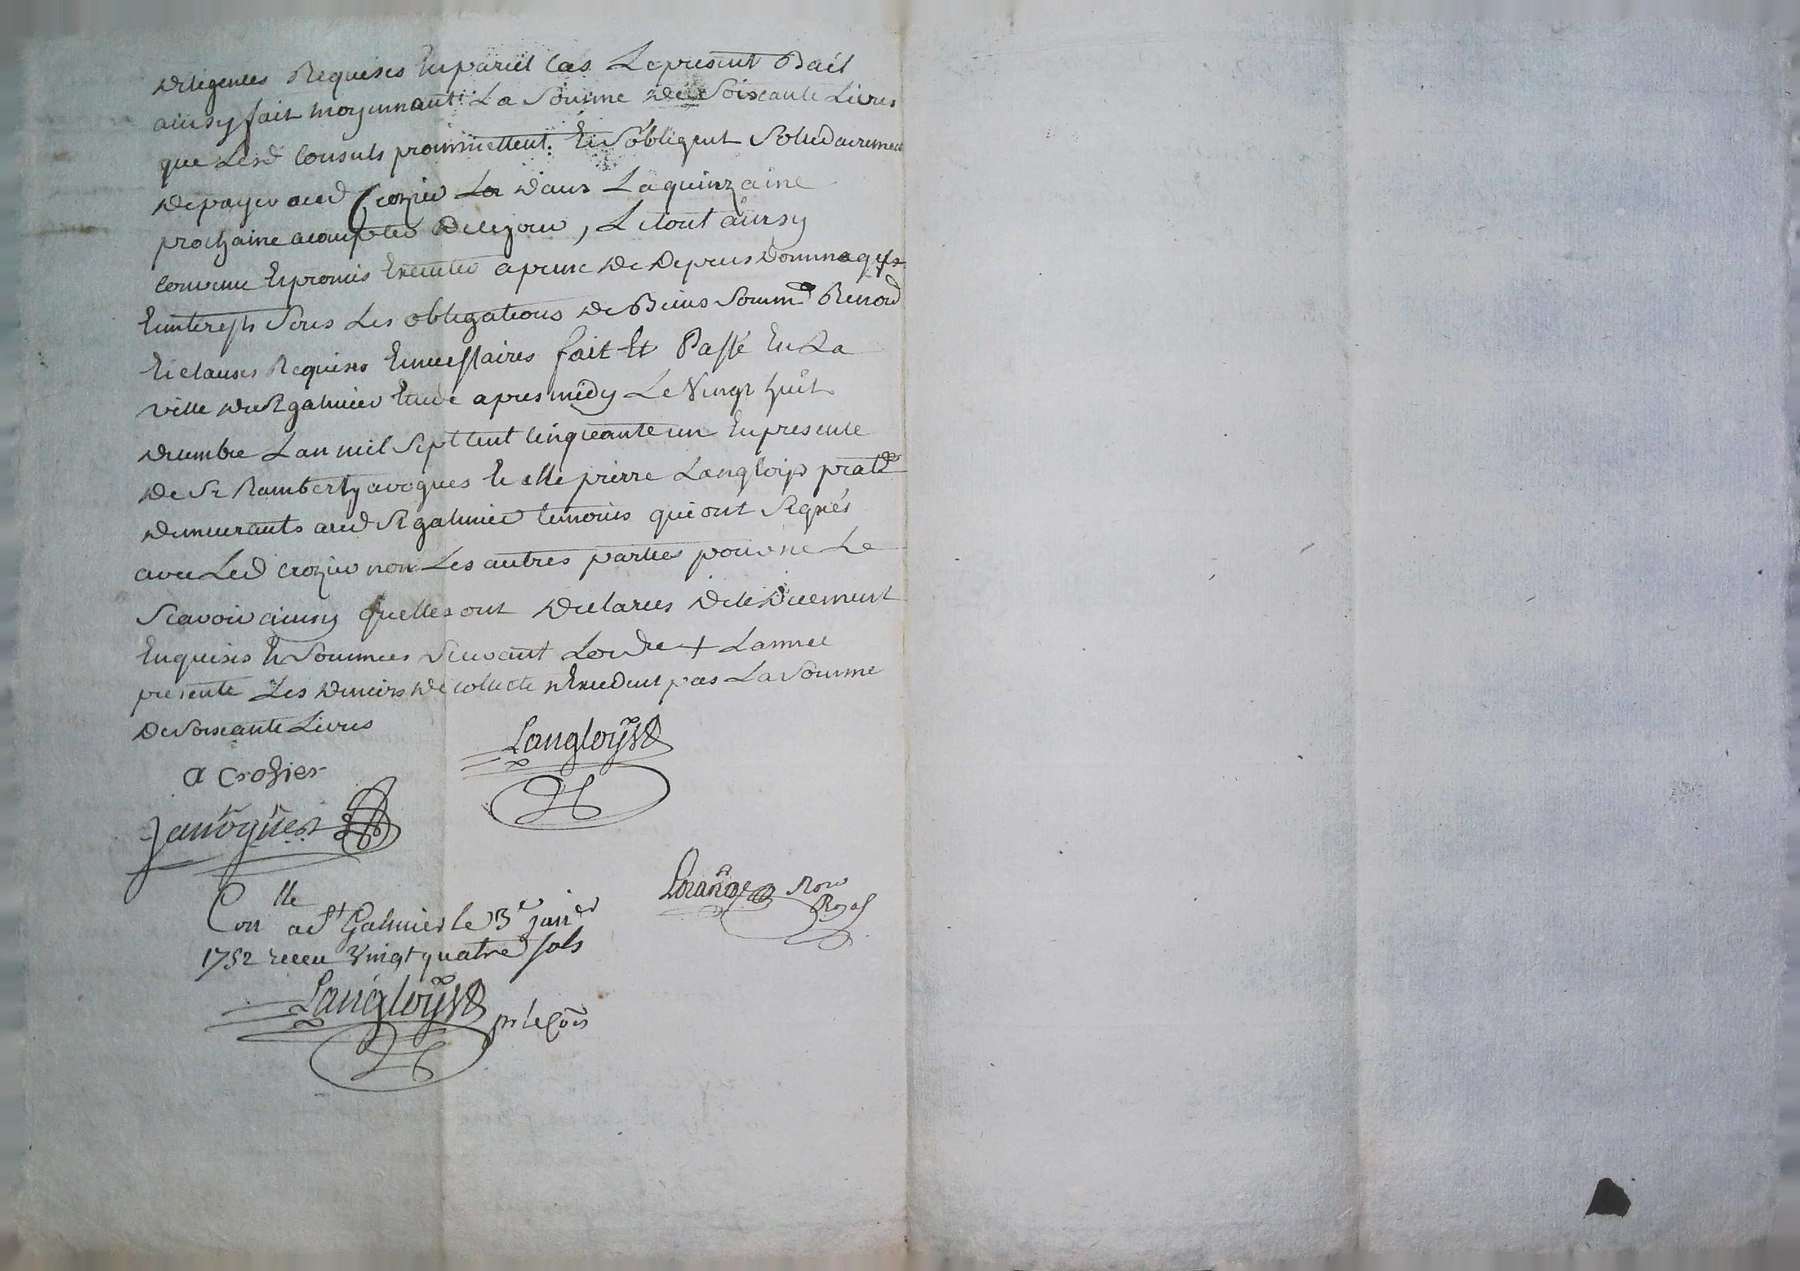 diligences Requises En pareil Cas Le present Bail
ainsy fait moyennant La Somme de Soixante Livres
que Lesd Consuls prommettent Et S'obligent Solidairement
de payer aud Crozier La dans La quinzaine
prochaine a compter de ce jour, Le tout ainsy
Convenu Et promis Executer a peine de depens dommages
Et interests Sous Les obligations de Biens Soumⁿ Renonᵈ
Et clauses Requises Et necessaires fait Et Passé En La
ville de St galmier Etude apres midy Le Vingt huit
decembre L an mil Sept Cent Cinquante un En presence
de Sr Rambert javogues Et de Mᵉ pierre Langlois pratⁿ
demeurants aud St galmier temoins qui ont Signés
avec Led Crozier non Les autres parties pour ne Le
Scavoir ainsy quelles ont declarés de ce duement
Enquises Et Sommees Suivant Lordᵉ + Lannee
presente Les deniers de collecte n'Exedent pas La Somme
de Soixante Livres
Langloys
a crozier
javogues
Conlle a St Galmier le 3e janer
1752 receu vingt quatre sols
Lorange Nore
Royal
Langloys
pr le Coīs